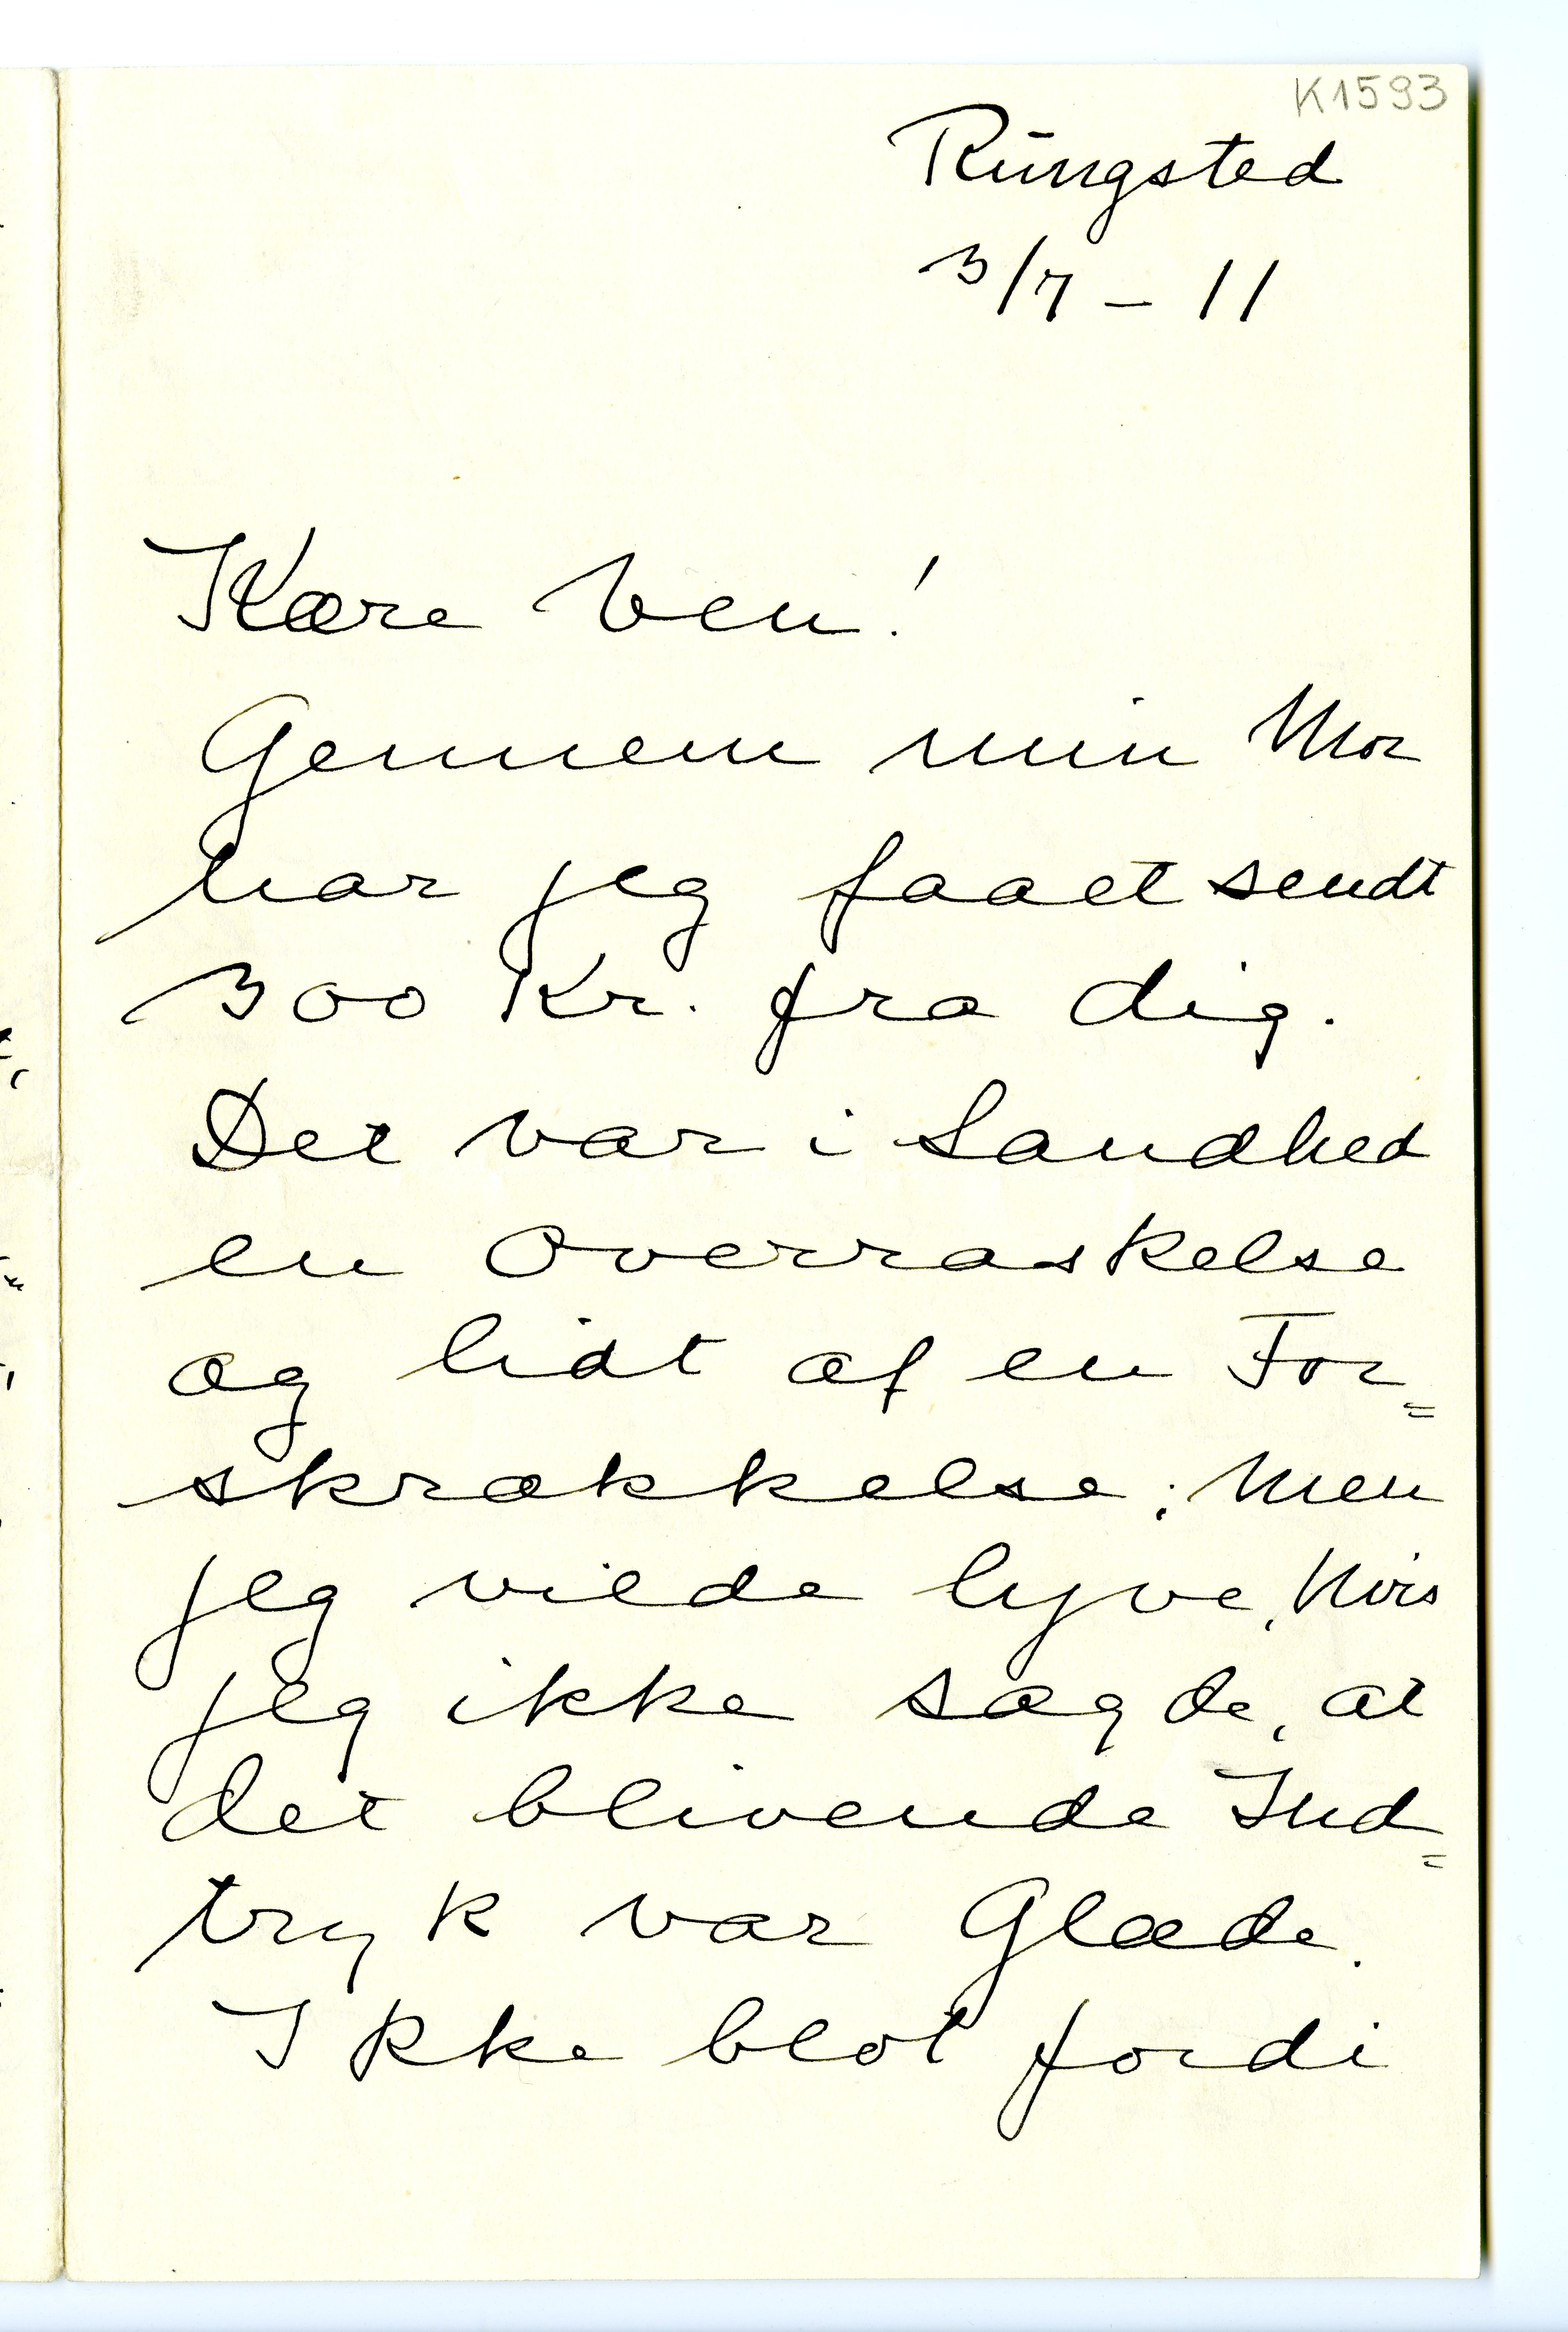 K1593
Rungsted
3/7 - 11
Kære Ven!
Gennem min Mor
har jeg faaet sendt
300 Kr. fra dig.
Det var i Sandhed
en Overraskelse
og lidt af en For=
skrækkelse; men
jeg vilde lyve, hvis
jeg ikke sagde, at
det blivende Ind=
tryk var Glæde.
Ikke blot fordi